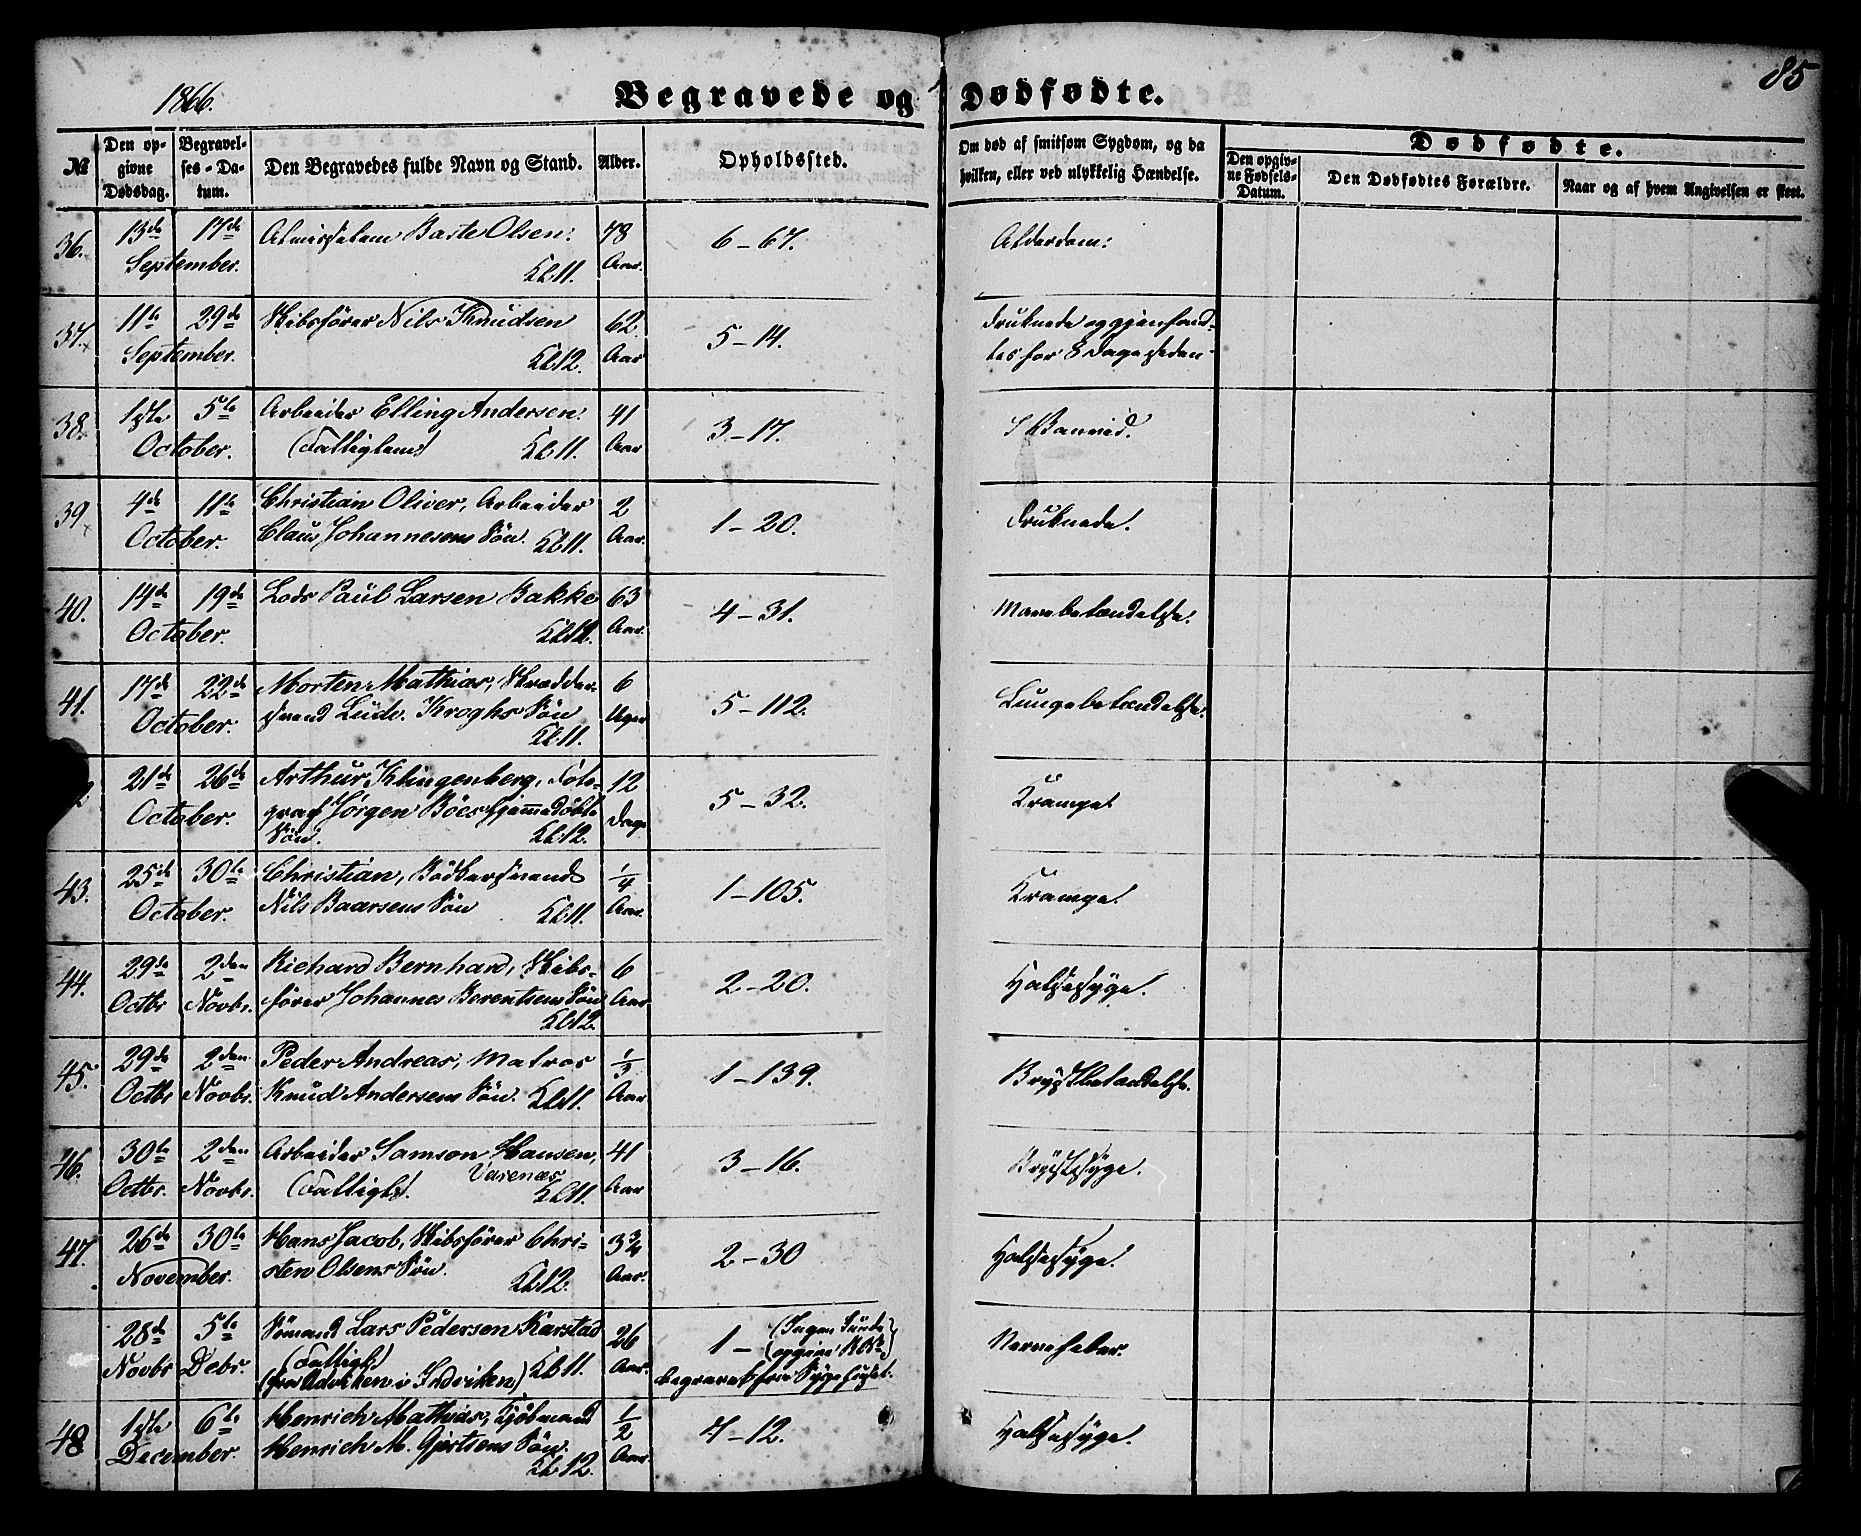 1866.
Begravede og Dødfødte.
85
№
Den opgivne Dødsdag.
Begravelses-Datum.
Den Begravedes fulde Navn og Stand.
Alder.
Opholdssted.
Om død af smitsom Sygdom, og da hvilken, eller ved ulykkelig Hændelse.
Dødfødte.
Den opgivne Fødsels-Datum.
Den Dødfødtes Forældre.
Naar og af hvem Angivelsen er skeet.
36. 13de 17de Almisselem Baste Olsen. 78 6-67. Alderdom.
September. Kl. 11. Aar.
37. 11te 29de Skibsfører Nils Knudsen 62 5-14. Druknede og gjenfand-
September. Kl. 12. Aar tes for 8 Dage siden.
38. 1ste 5te Arbeider Elling Andersen. 41 3-17.
October. (Fattiglem) Kl. 11. Aar
39 4de 11te Christian Oliver, Arbeider 2 1-20. Druknede.
October. Claus Johannesens Søn. Kl. 11. Aar.
40. 14de 19de Lods Paul Larsen Bakke 63 4-31. Mavebetændelse.
October. Kl. 12. Aar.
41. 17de 22de Morten Mathias, Skrædder- 6 5-112. Lungebetændelse.
October. svend Ludv. Kroghs Søn Uger
Kl. 11.
21de 26de Arthur Klingenberg, Foto- 12 5-32. Krampe
October. graf Jørgen Böes hjemmedøbte Dage
Søn. Kl. 12.
43. 25de 30te Christian, Bødkersvend 1/4 1-105. Krampe.
October. Nils Baarsens Søn Kl. 11. Aar.
44. 29de 2den Richard Bernhard, Skibs- 6 2-20. Halssyge.
Octbr Novbr. fører Johannes Berentsens Søn Aar.
Kl. 12.
45. 29de 2den Peder Andreas, Matros 1/3 1-139. Brystbetændelse.
Octbr Novbr. Knud Andersens Søn. Kl. 11. Aar
46. 30te 2den Arbeider Samson Hansen, 41 3-16. Brystsyge.
Octbr. Novbr. (Fattigl.) Varenæs Kl. 11. Aar
47. 26de 30te Hans Jacob, Skibsfører Chri- 3 3/4 2-30 Halssyge.
November. sten Olsens Søn. Kl. 12. Aar.
28de 5te Sømand Lars Pedersen Karstad 26 1- (Ingen Rode Nervefeber.
Novbr Debr. (Fattigl.) Kl. 11. Aar. opgivet
(fra Udviken i Indviken) begravet fra Sygehuset.
48 1ste 6te Henrich Mathias, Kjøbmand 1/2 4-12. Halssyge.
December. Henrich M. Gjertsens Søn. Aar.
Kl. 12.